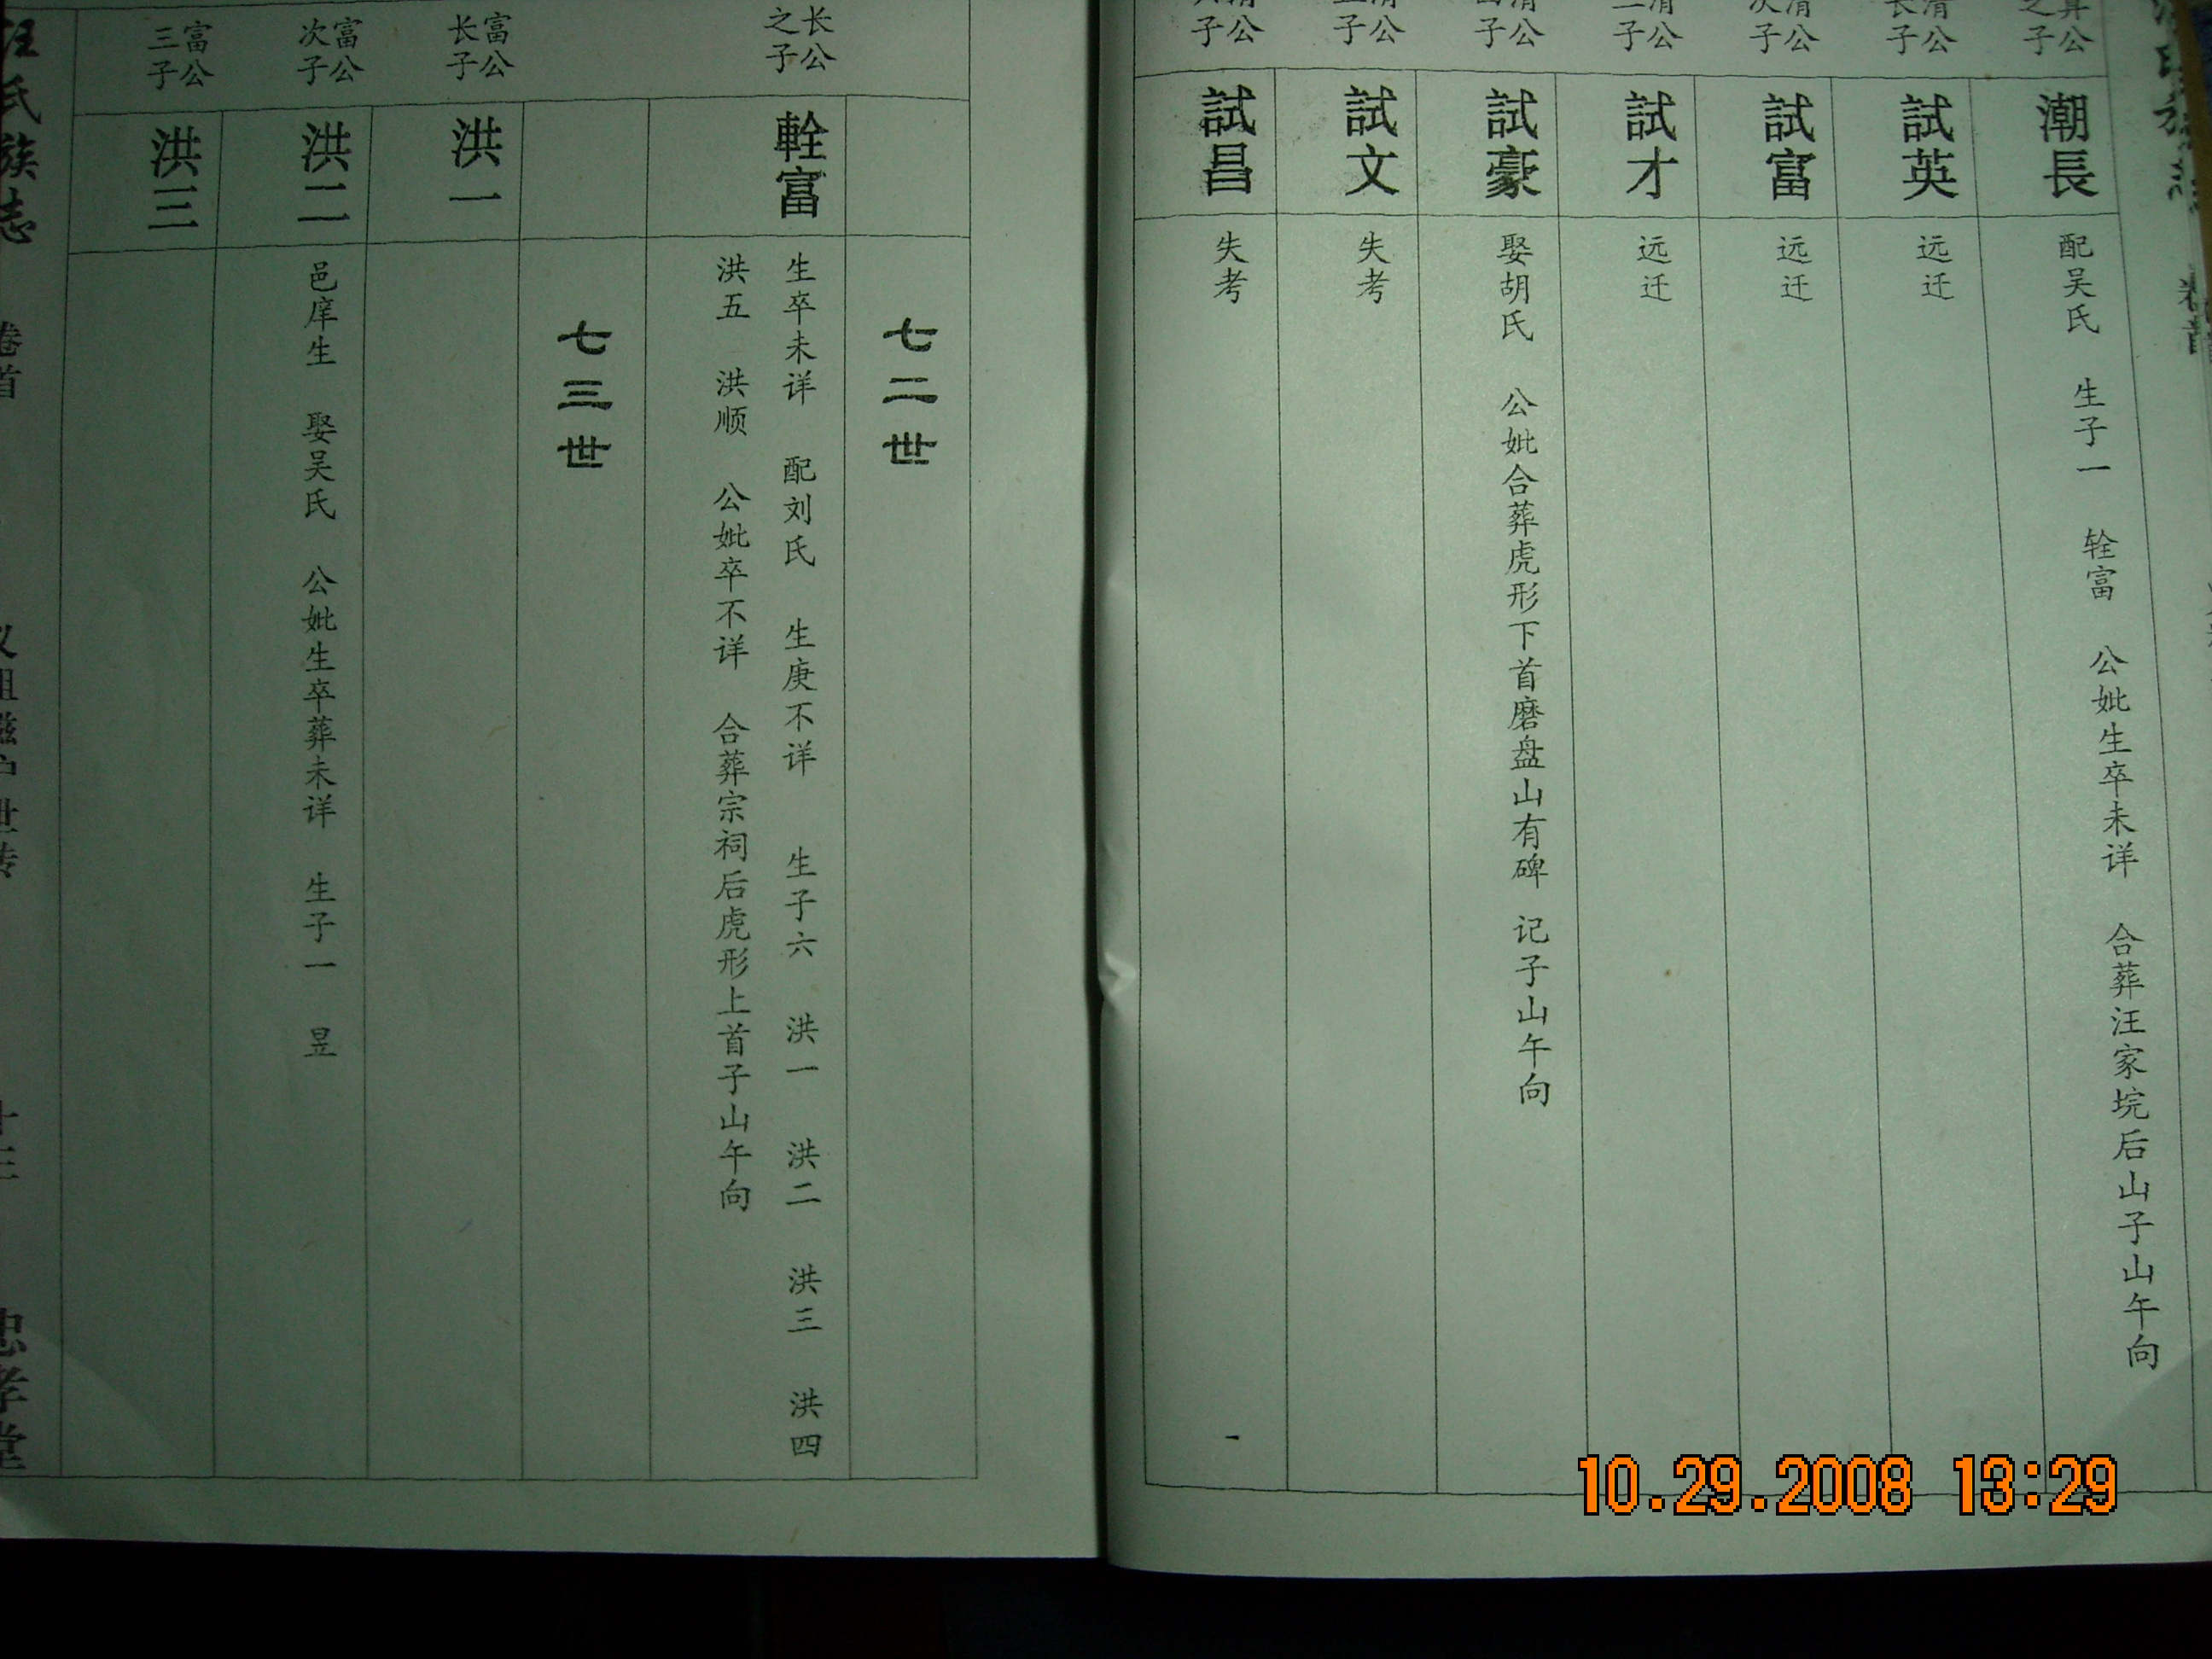 算公之子
潮長
配吴氏 生子一 辁富 公妣生卒未详 合葬汪家垸后山子山午向
清公长子
試英
远迁
清公次子
試富
远迁
清公三子
試才
远迁
清公
子
試豪
娶胡氏 公妣合葬虎形下首磨盘山有碑 记子山午向
清公
子
試文
失考
清公
子
試昌
失考
一
七二世
长公之子
輇富
生卒未详 配刘氏 生庚不详 生子六 洪一 洪二 洪三 洪四
洪五 洪顺 公妣卒不详 合葬宗祠后虎形上首子山午向
七三世
富公长子
洪一
富公次子
洪二
邑庠生 娶吴氏 公妣生卒葬未详 生子一 昱
富公三子
洪三
汪氏族志 卷首 世传 十三 忠孝堂
10.29.2008 13:29